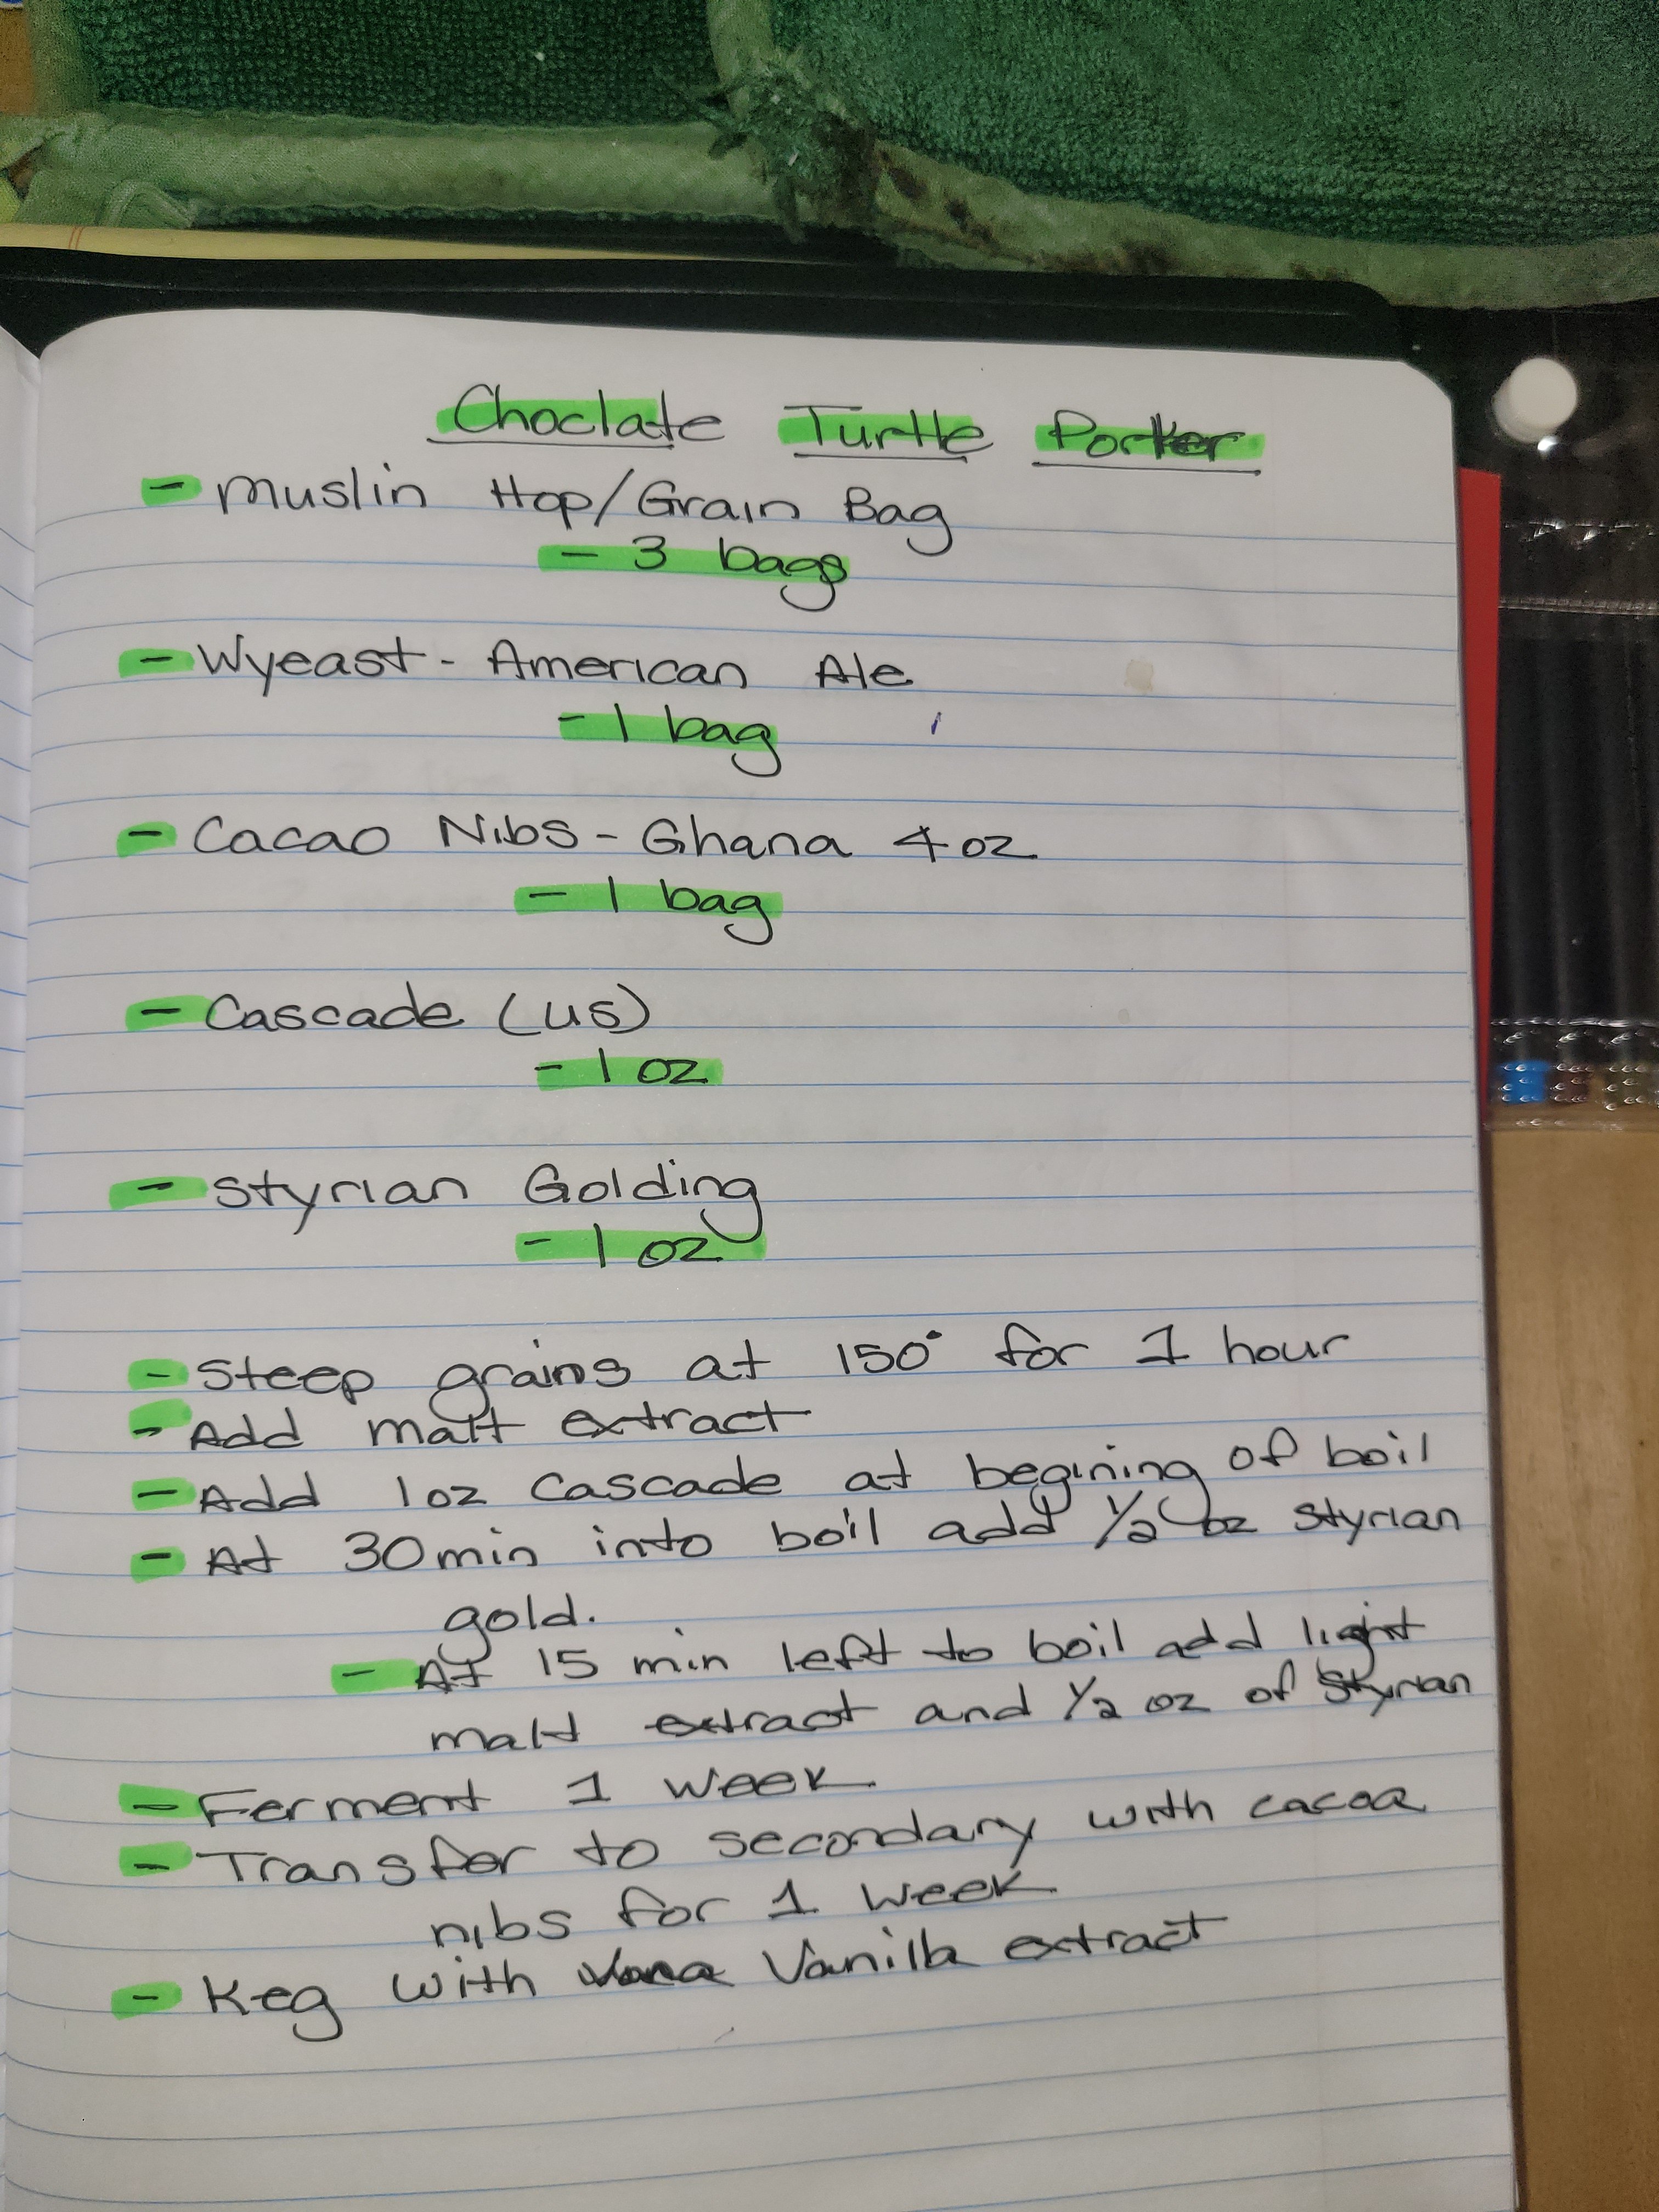 Choclate Turtle Porter
- Muslin Hop/Grain Bag
- 3 bags
- Wyeast - American Ale
- 1 bag
- Cacao Nibs - Ghana 4 oz
- 1 bag
- Cascade (US)
- 1 oz
- Styrian Golding
- 1 oz
- Steep grains at 150° for 1 hour
- Add malt extract
- Add 1oz Cascade at begining of boil
- At 30min into boil add 1/2 oz Styrian
gold.
- At 15 min left to boil add light
malt extract and 1/2 oz of Styrian
- Ferment 1 week
- Transfer to secondary with cacoa
nibs for 1 week
- Keg with Vanilla extract